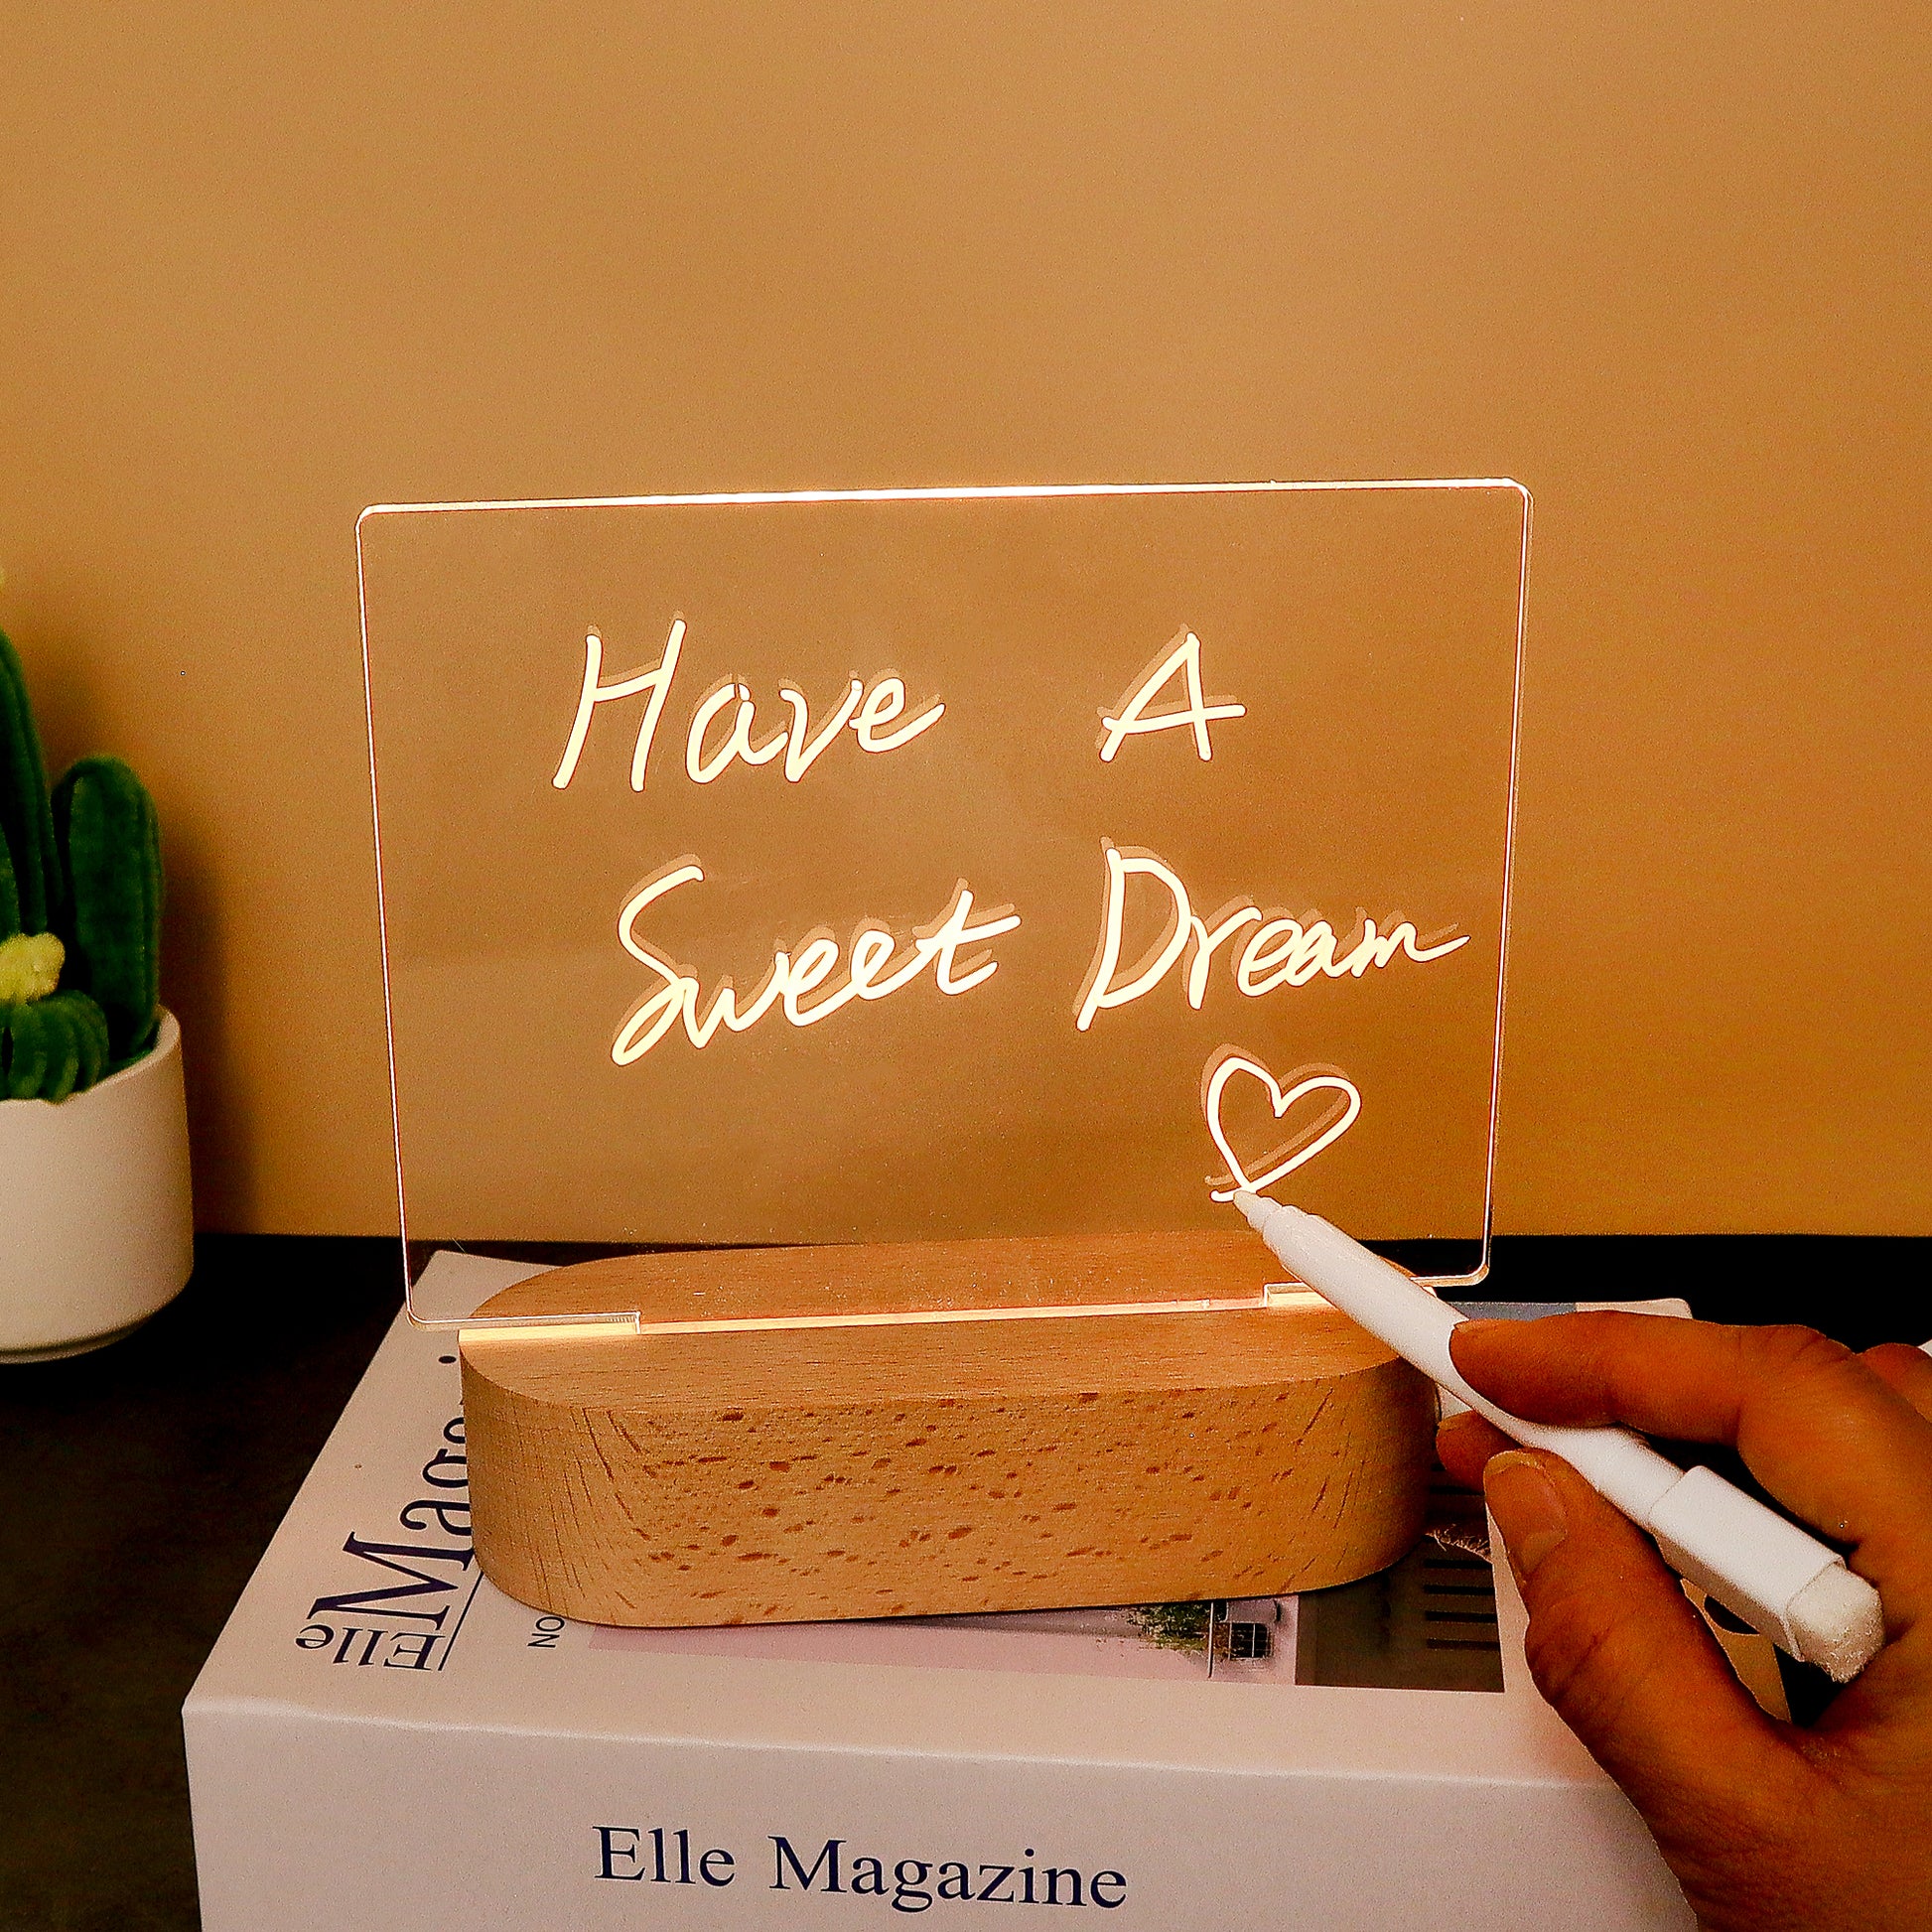 Have A
Sweet Dream
Elle
NO
Elle Magazine